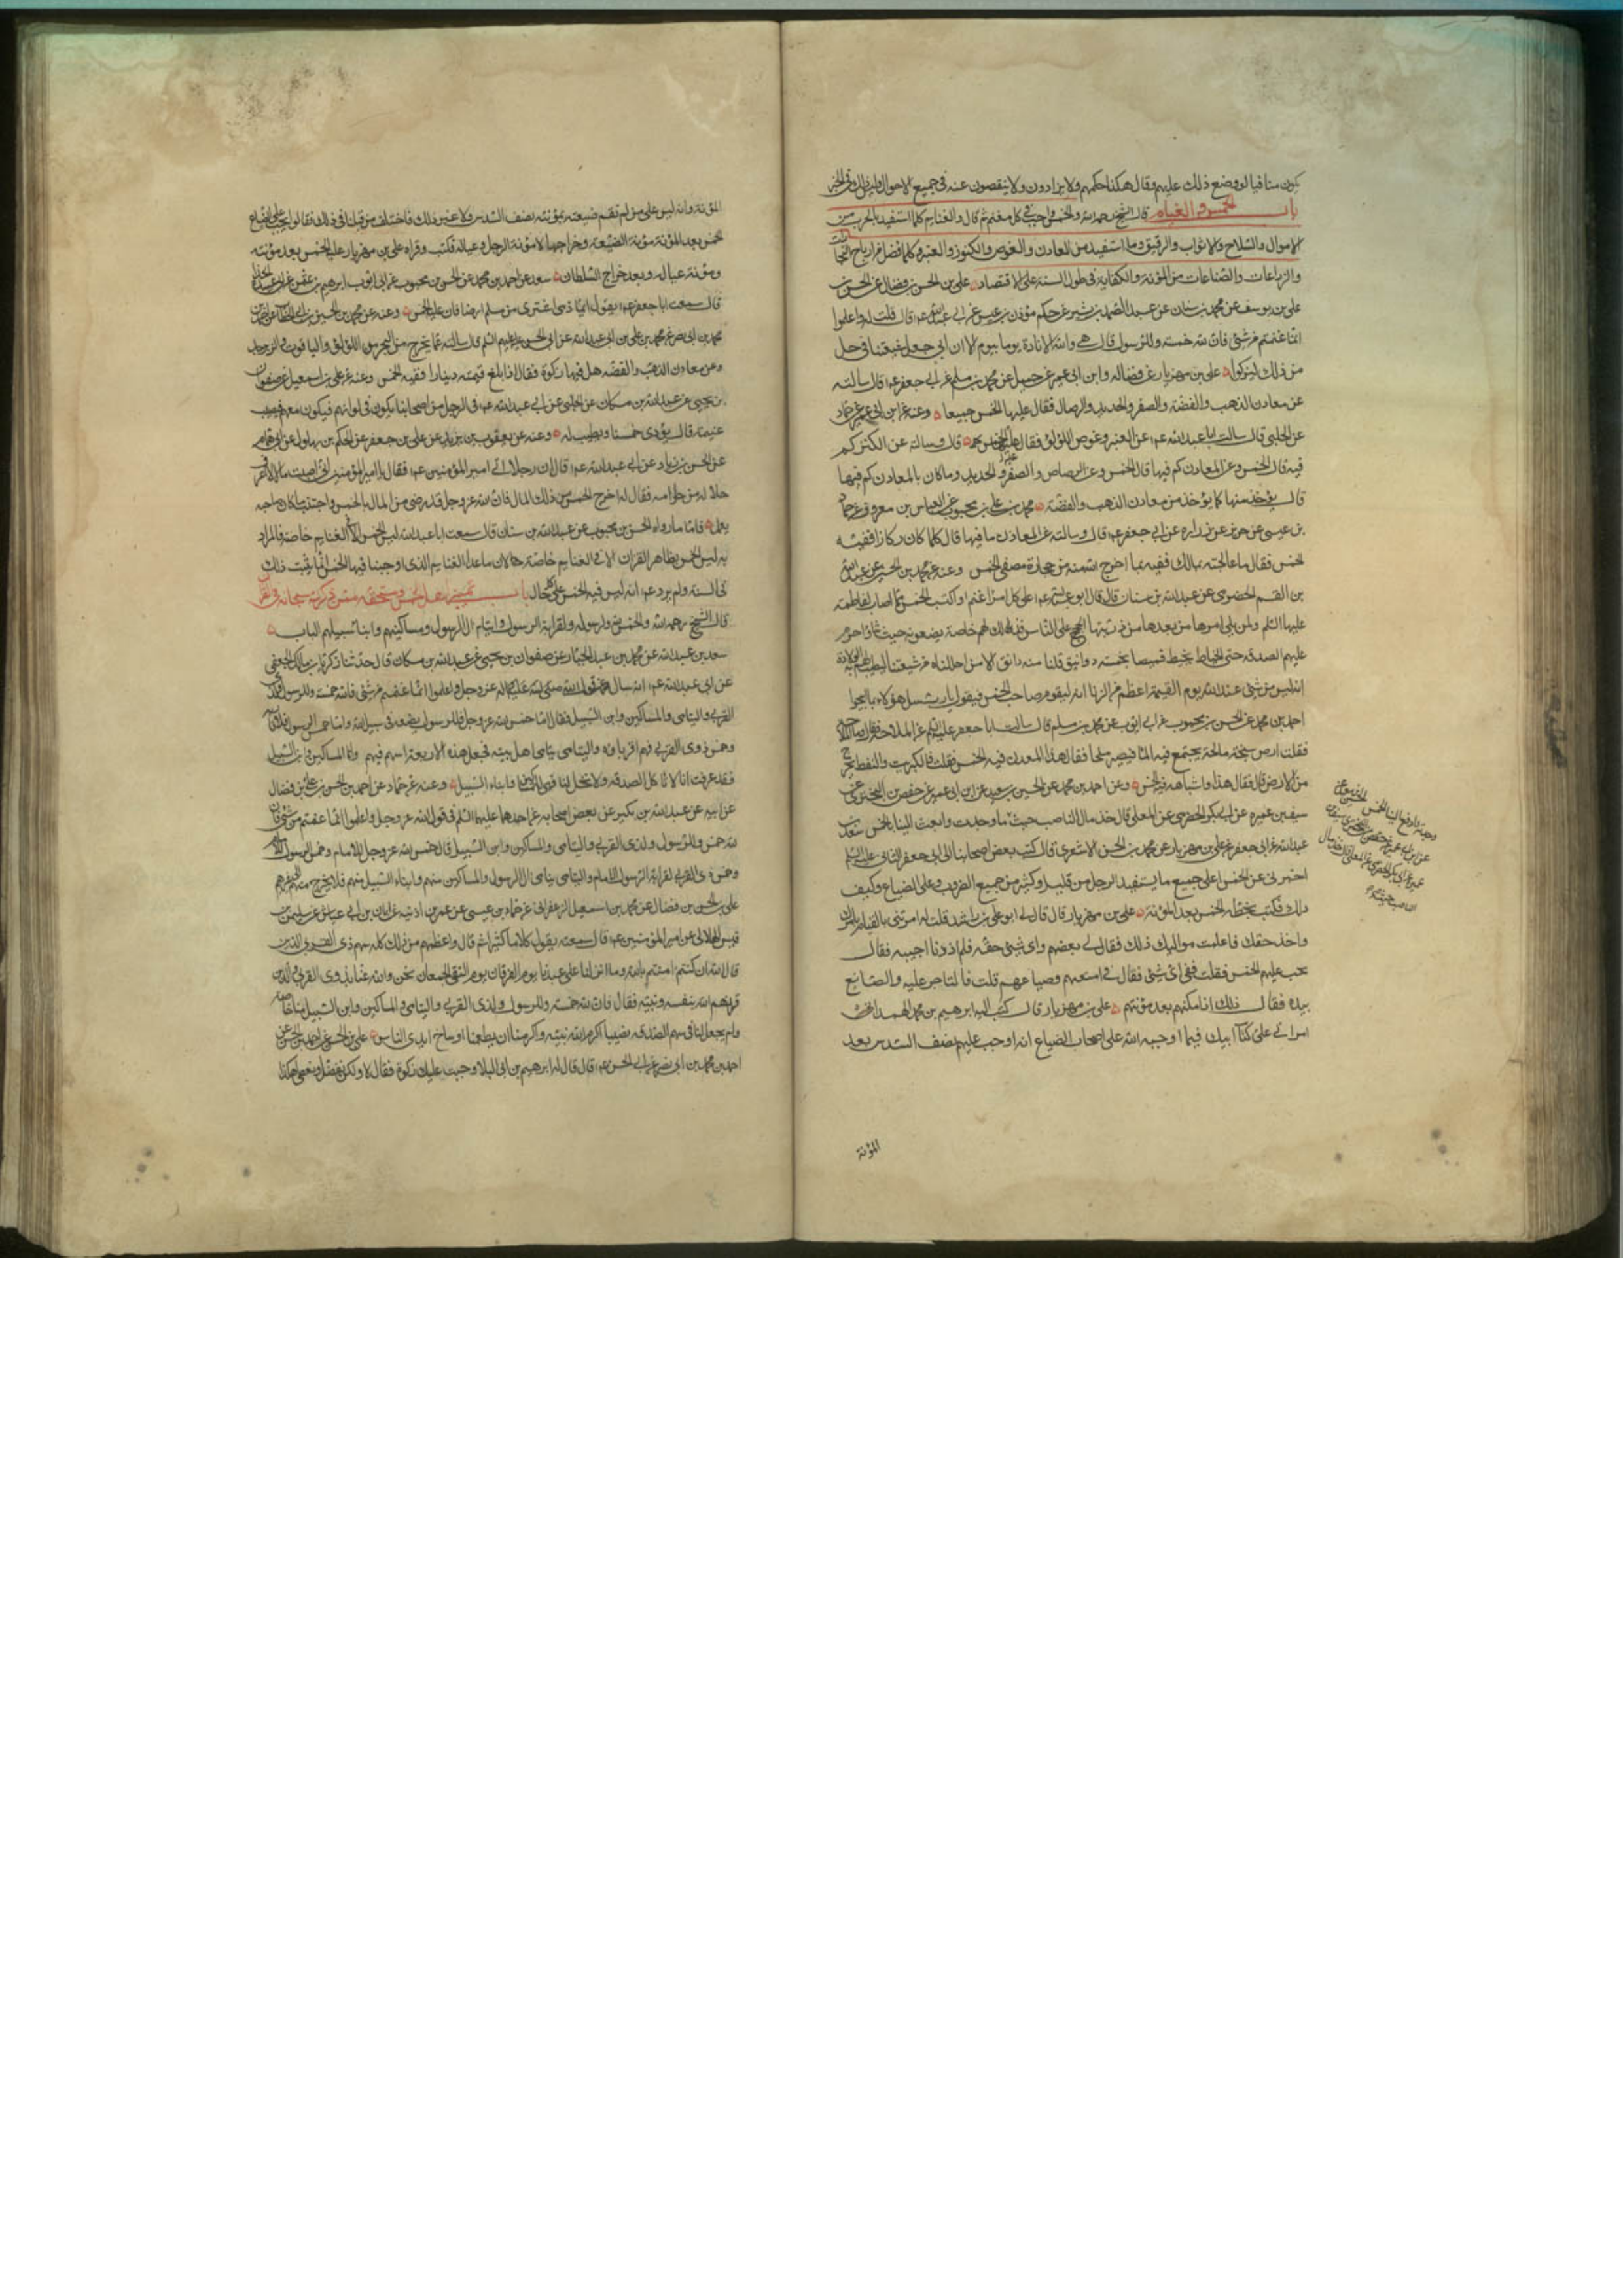 يكون منافيا لو وضع ذلك عليهم وقال هكذا حكمهم ولا يزادون ولا ينقصون عنه في جميع الاحوال
باب الخمس والغنايم قال الشيخ رحمه الله والخمس واجب في كل مغنم ثم قال والغنايم كلما استفيد بالحرب من
الاموال والسلاح والاثواب والرقيق وما استفيد من المعادن والغوص والكنوز والعنبر وكلما فضل من ارباح التجارات
والزراعات والصناعات من المؤنة والكفاية في طول السنة على الاقتصاد علي بن الحسن بن فضال عن الحسن بن
علي بن يوسف عن محمد بن سنان عن عبد الصمد بن بشير عن حكيم مؤذن بن عيسى عن ابي عبد الله ع قال قلت له واعلموا
انما غنمتم من شئ فان لله خمسه وللرسول قال هي والله الافادة يوما بيوم الا ان ابي جعل شيعتنا في حل
من ذلك ليزكوا علي بن مهزيار عن فضاله وابن ابي عمير عن جميل عن محمد بن مسلم عن ابي جعفر ع قال سالته
عن معادن الذهب والفضة والصفر والحديد والرصاص فقال عليها الخمس جميعا وعنه عن ابن ابي عمير عن حماد
عن الحلبي قال سالت ابا عبد الله ع عن العنبر وغوص اللؤلؤ فقال عليه الخمس قال وسالته عن الكنز كم
فيه قال الخمس وعن المعادن كم فيها قال الخمس وعن الرصاص والصفر والحديد وما كان بالمعادن كم فيها
قال يؤخذ منها كما يؤخذ من معادن الذهب والفضة محمد بن علي بن محبوب عن العباس بن معروف عن حماد
بن عيسى عن حريز عن زراره عن ابي جعفر ع قال وسالته عن المعادن ما فيها قال كلما كان ركازا ففيه
الخمس فقال ما عالجته بمالك ففيه مما اخرج الله منه من حجارة مصفى الخمس وعنه عن محمد بن الحسين عن عبد الله
بن القسم الحضرمي عن عبد الله بن سنان قال قال ابو عبد الله ع على كل امرئ غنم او اكتسب الخمس مما اصاب لفاطمة
عليها السلم ولمن يلي امرها من بعدها من ذريتها الحجج على الناس فذلك لهم خاصة يضعونه حيث شاؤا وحرم
عليهم الصدقه حتى الخياط يخيط قميصا بخمسه دوانيق فلنا منه دانق الا من احللناه من شيعتنا لتطيب لهم به الولادة
انه ليس من شئ عند الله يوم القيمة اعظم من الزنا انه ليقوم صاحب الخمس فيقول يا رب سل هؤلاء بما ابيحوا
احمد بن محمد عن الحسن بن محبوب عن ابي ايوب عن محمد بن مسلم قال سالت ابا جعفر عليه السلم عن الملاحة فقال وما الملاحة
فقلت ارض سبخة مالحة يجتمع فيه الماء فيصير ملحا فقال هذا المعدن فيه الخمس فقلت فالكبريت والنفط يخرج
من الارض قال فقال هذا واشباهه فيه الخمس وعن احمد بن محمد عن الحسين بن سعيد عن ابن ابي عمير عن حفص بن البختري عن
سيف بن عميره عن ابي بكر الحضرمي عن المعلى قال خذ مال الناصب حيث ما وجدت وابعث الينا بالخمس سعد بن
عبد الله عن ابي جعفر عن علي بن مهزيار عن محمد بن الحسن الاشعري قال كتب بعض اصحابنا الى ابي جعفر الثاني عليه السلم
اخبرني عن الخمس اعلى جميع ما يستفيد الرجل من قليل وكثير من جميع الضروب وعلى الضياع وكيف
ذلك فكتب بخطه الخمس بعد المؤنة علي بن مهزيار قال قال لي ابو علي بن راشد قلت له امرتني بالقيام بامرك
واخذ حقك فاعلمت مواليك ذلك فقال لي بعضهم واي شئ حقه فلم ادر ما اجيبه فقال
يجب عليهم الخمس فقلت ففي اي شئ فقال في امتعتهم وضياعهم قلت فالتاجر عليه والصانع
بيده فقال ذلك اذا امكنهم بعد مؤنتهم علي بن مهزيار قال كتب اليه ابرهيم بن محمد الهمداني
اقراني علي كتاب ابيك فيما اوجبه الله على اصحاب الضياع انه اوجب عليهم نصف السدس بعد
المؤنة
المؤنة وانه ليس على من لم تقم ضيعته بمؤنته نصف السدس ولا غير ذلك فاختلف من قبلنا في ذلك فقالوا يجب على الضياع
الخمس بعد المؤنة مؤنة الضيعة وخراجها لا مؤنة الرجل وعياله فكتب وقراه علي بن مهزيار عليه الخمس بعد مؤنته
ومؤنة عياله وبعد خراج السلطان سعد عن احمد بن محمد عن الحسن بن محبوب عن ابي ايوب ابرهيم بن عثمن عن ابي عبيدة الحذاء
قال سمعت ابا جعفر ع يقول ايما ذمي اشترى من مسلم ارضا فان عليه الخمس وعنه عن محمد بن الحسين بن ابي الخطاب عن احمد بن
محمد بن ابي نصر عن محمد بن علي بن ابي عبد الله عن ابي الحسن عليه السلم قال سالته عما يخرج من البحر من اللؤلؤ والياقوت والزبرجد
وعن معادن الذهب والفضة هل فيها زكوة فقال اذا بلغ قيمته دينارا ففيه الخمس وعنه عن علي بن اسمعيل عن صفوان
بن يحيى عن عبد الله بن مسكان عن الحلبي عن ابي عبد الله ع في الرجل من اصحابنا يكون في لوائهم فيكون معهم فيصيب
غنيمة قال يؤدي خمسنا ويطيب له وعنه عن يعقوب بن يزيد عن علي بن جعفر عن الحكم بن بهلول عن ابي همام
عن الحسن بن زياد عن ابي عبد الله ع قال ان رجلا اتى امير المؤمنين ع فقال يا امير المؤمنين اني اصبت مالا لا اعرف
حلاله من حرامه فقال له اخرج الخمس من ذلك المال فان الله عز وجل قد رضي من المال بالخمس واجتنب ما كان صاحبه
يعلم فاما ما رواه الحسن بن محبوب عن عبد الله بن سنان قال سمعت ابا عبد الله ليس الخمس الا في الغنايم خاصة فالمراد
به ليس الخمس بظاهر القران الا في الغنايم خاصة لان ما عدا الغنايم الذي اوجبنا فيها الخمس انما يثبت ذلك
في السنة ولم يرد ع انه ليس فيه الخمس على كل حال باب تمييز اهل الخمس ومستحقه ممن ذكر الله سبحانه في القران
قال الشيخ رحمه الله والخمس لله ولرسوله ولقرابة الرسول وايتام آل الرسول ومساكينهم وابناء سبيلهم الباب
سعد بن عبد الله عن محمد بن عبد الجبار عن صفوان بن يحيى عن عبد الله بن مسكان قال حدثنا زكريا بن مالك الجعفي
عن ابي عبد الله ع انه ساله عن قول الله عز وجل واعلموا انما غنمتم من شئ فان لله خمسه وللرسول ولذي
القربى واليتامى والمساكين وابن السبيل فقال اما خمس الله عز وجل فللرسول يضعه في سبيل الله واما خمس الرسول فلاقاربه
وخمس ذوي القربى فهم اقرباؤه واليتامى يتامى اهل بيته فجعل هذه الاربعة اسهم فيهم واما المساكين وابن السبيل
فقد عرفت انا لا ناكل الصدقه ولا تحل لنا فهي للمساكين وابناء السبيل وعنه عن حماد عن احمد بن الحسن بن علي بن فضال
عن ابيه عن عبد الله بن بكير عن بعض اصحابه عن احدهما عليهما السلم في قول الله عز وجل واعلموا انما غنمتم من شئ فان
لله خمسه وللرسول ولذي القربى واليتامى والمساكين وابن السبيل قال خمس الله عز وجل للامام وخمس الرسول للامام
وخمس ذي القربى لقرابة الرسول الامام واليتامى يتامى آل الرسول والمساكين منهم وابناء السبيل منهم فلا يخرج منهم الى غيرهم
علي بن الحسن بن فضال عن محمد بن اسمعيل الزعفراني عن حماد بن عيسى عن عمر بن اذينه عن ابان بن ابي عياش عن سليم بن
قيس الهلالي عن امير المؤمنين ع قال سمعته يقول كلاما كثيرا ثم قال واعظم من ذلك كله سهم ذي القربى الذين
قال الله ان كنتم امنتم بالله وما انزلنا على عبدنا يوم الفرقان يوم التقى الجمعان نحن والله عنا بذوي القربى والذين
قرنهم الله بنفسه ونبيه فقال فان لله خمسه وللرسول ولذي القربى واليتامى والمساكين وابن السبيل منا خاصة
ولم يجعل لنا في سهم الصدقه نصيبا اكرم الله نبيه واكرمنا ان يطعمنا اوساخ ايدي الناس علي بن الحسن عن احمد بن الحسن عن
احمد بن محمد بن ابي نصر عن ابي الحسن ع قال قال له ابرهيم بن ابي البلاد وجبت عليك زكوة فقال لا ولكن نفضل ونعطي هكذا